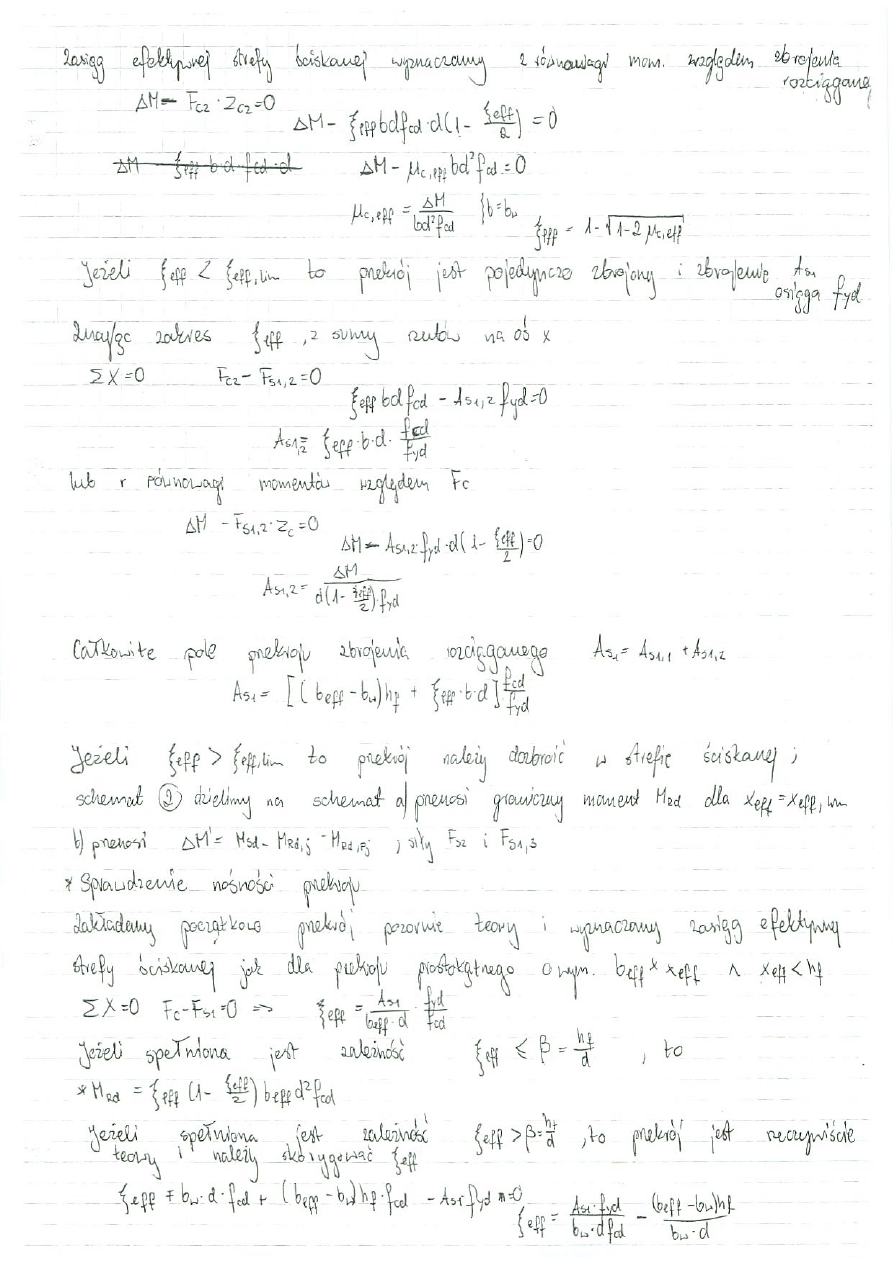 Zasięg efektywnej strefy ściskanej wyznaczamy z równowagi mom. względem zbrojenia rozciąganej
ΔM - Fc2 · Zc2 = 0
ΔM - ξeff b d fcd · d(1 - ξeff/2) = 0
ΔM - ξeff b·d·fcd·d
ΔM - μc,eff bd² fcd = 0
μc,eff = ΔM/(bd² fcd) {b = bw
ξeff = 1 - √(1 - 2 μc,eff)
Jeżeli ξeff < ξeff,lim to prekrój jest pojedynczo zbrojony i zbrojenie As1 osiąga fyd
Znając zakres ξeff, z sumy rzutów na oś x
ΣX = 0 Fc2 - Fs1,2 = 0
ξeff bd fcd - As1,2 fyd = 0
As1,2 = ξeff · b · d · fcd/fyd
lub r równowagi momentów względem Fc
ΔM - Fs1,2 · Zc = 0
ΔM - As1,2 · fyd · d(1 - ξeff/2) = 0
As1,2 = ΔM/(d(1 - ξeff/2) · fyd)
Całkowite pole prekroju zbrojenia rozciąganego As1 = As1,1 + As1,2
As1 = [(beff - bw)hf + ξeff · b · d] fcd/fyd
Jeżeli ξeff > ξeff,lim to prekrój należy dozbroić w strefie ściskanej;
schemat ② dzielimy na schemat a) prenosi graniczny moment MRd dla xeff = xeff,lim
b) prenosi ΔM' = Msd - MRd,j - MRd,Fj, siły Fs2 i Fs1,3
* Sprawdzenie nośności prekroju
Zakładamy początkowo prekrój pozornie teowy i wyznaczamy zasięg efektywnej
strefy ściskanej jak dla prekroju prostokątnego o wym. beff x xeff ∧ xeff < hf
ΣX = 0 Fc - Fs1 = 0 => ξeff = As1/(beff · d) · fyd/fcd
Jeżeli spełniona jest zależność ξeff ≤ β = hf/d, to
* MRd = ξeff (1 - ξeff/2) beff d² fcd
Jeżeli spełniona jest zależność ξeff > β = hf/d, to prekrój jest rzeczywiście
teowy i należy skorygować ξeff
ξeff · bw · d · fcd + (beff - bw)hf · fcd - As1 · fyd = 0
ξeff = As1 · fyd/(bw · d fcd) - (beff - bw)hf/(bw · d)